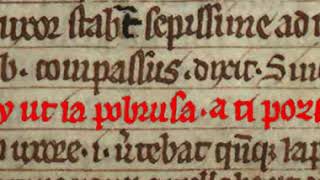 uxor stab̄t sepissime ad
b. compassus. dixit. Sin
y ut ia pobrusa. a ti poz
uxore. i. u̕tebat qn̄q; lap